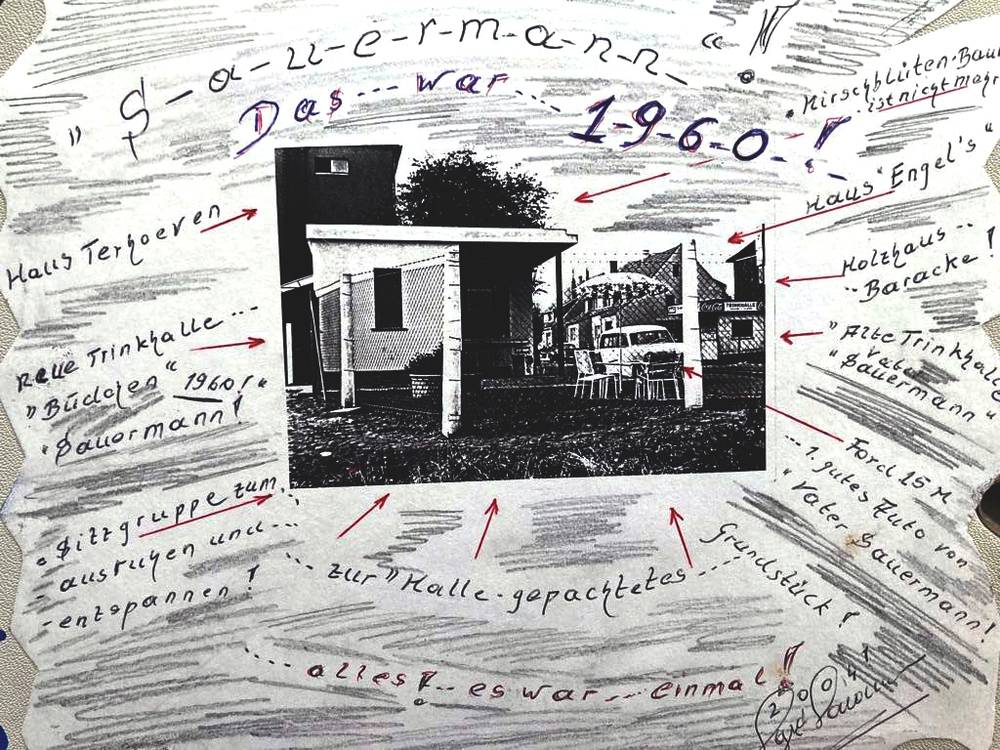 „S-a-u-e-r-m-a-n-n-“!
Das--war---- 1-9-6-0-!
. Kirschblüten-Baum
..ist nicht mehr
Haus Terhoeven
Haus "Engel's"
Holzhaus---
..Baracke!
Neue Trinkhalle ---
„Büdchen“ 1960!"
"Sauermann!
"Alte Trinkhalle
Vater
"Sauermann"
Coca-Cola TRINKHALLE
Ford 15 M
---1. gutes Auto von
"Vater Sauermann!
"Sitzgruppe zum..
-ausruhen und---
-entspannen!
--- zur "Halle-gepachtetes ---- Grundstück!
---- alles!-- es war --- einmal!
2004!